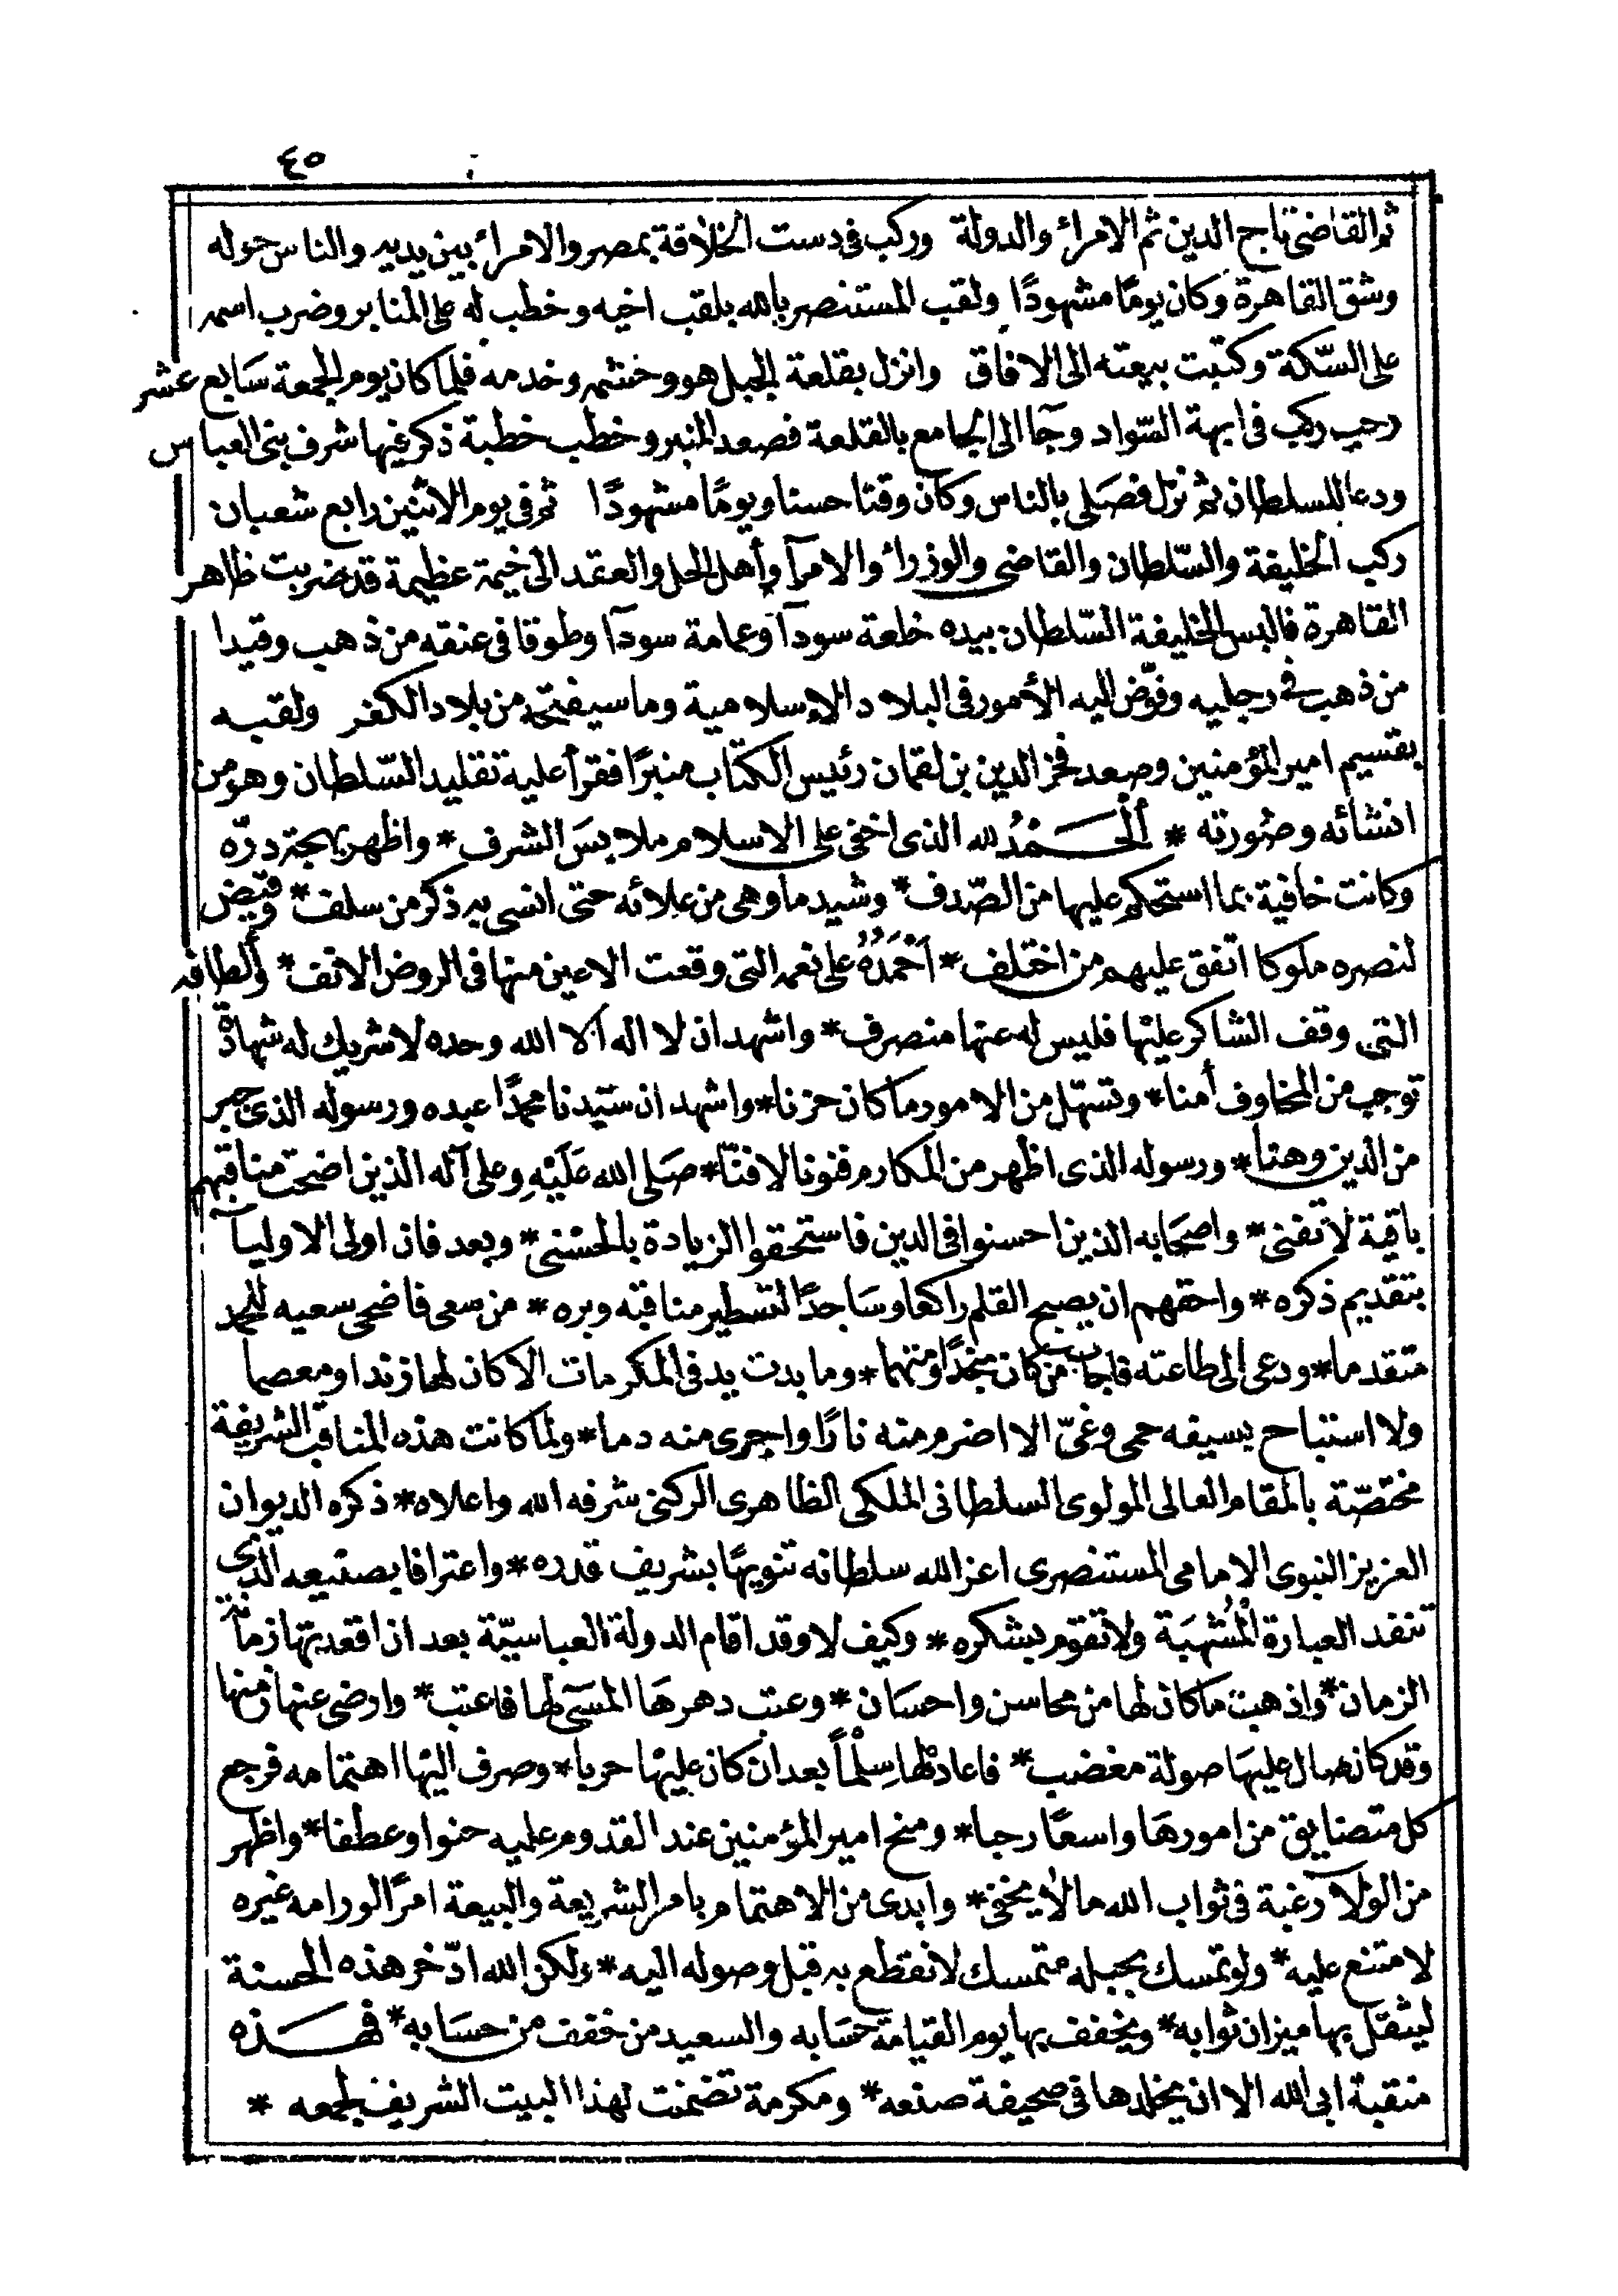 ٤٥
ثم القاضى تاج الدين ثم الامراء والدولة وركب فى دست الخلافة بمصر والامراء بين يديه والناس حوله
وشق القاهرة وكان يومًا مشهودًا ولقب المستنصر بالله بلقب اخيه وخطب له على المنابر وضرب اسمه
على السّكة وكتبت بيعته الى الافاق وانزل بقلعة الجبل هو وحشمه وخدمه فلما كان يوم الجمعة سَابع عشر
رجب ركب فى ابهة السّواد وجآ الى الجامع بالقلعة فصعد المنبر وخطب خطبة ذكر فيها شرف بنى العباس
ودعا للسلطان ثم نزل فصَلى بالناس وكان وقتا حسنا ويومًا مشهودًا ثم فى يوم الاثنين رابع شعبان
ركب الخليفة والسّلطان والقاضى والوزراء والامرآ وأهل الحل والعقد الى خيمة عظيمة قد ضربت ظاهر
القاهرة فالبس الخليفة السّلطان بيده خلعة سودآ وعمامة سودآ وطوقا فى عنقه من ذهب وقيدا
من ذهب فى رجليه وفوّض اليه الأمور فى البلاد الإسلامية وما سيفتحه من بلاد الكفر ولقبه
بقسيم امير المؤمنين وصعد فخر الدين بن لقمان رئيس الكتّاب منبرًا فقرأ عليه تقليد السّلطان وهو من
انشائه وصُورته * أَلْحَمْدُ لله الذى اضفى على الاسلام ملابسَ الشرف * واظهر بهجة درّه
وكانت خافية بما استحكم عليها من الصّدف * وشيد ما وهى من علائه حتى انسى به ذكر من سلف * وقيض
لنصره ملوكا اتفق عليهم من اختلف * اَحْمَدُهُ على نعمه التى وقعت الاعين منها فى الروض الانف * وألطافه
التى وقف الشاكر عليْها فليس له عنها منصرف * واشهد ان لا اله الا الله وحده لا شريك له شهادة
توجب من المخاوف أمنا * وتسهّل من الامور ما كان حزنا * واشهد ان سَيّدنا محمدًا عبده ورسوله الذى جبر
من الدين وهنا * ورسوله الذى اظهر من المكارم فنونا لا فنّا * صَلى الله عَلَيْهِ وعلى آله الذين اضحت مناقبهم
باقية لا تفنى * واصحَابه الذين احسنوا فى الدين فاستحقوا الزيادة بالحُسْنى * وبعد فان اولى الاوليآ
بتقديم ذكره * واحقهم ان يصبح القلم راكعا وسَاجدًا لتسطير مناقبه وبره * من سعى فاضحى سعيه للحمد
متقدما * ودعى الى طاعته فاجاب من كان منجدًا ومتهما * وما بدت يد فى المكرمات الا كان لها زندا ومعصما
ولا استباح بسيفه حمى وغىّ الا اضرم منه نارًا واجرى منه دما * ولما كانت هذه المناقب الشريفة
مختصّة بالمقام العالى المولوى السلطانى الملكى الظاهرى الركنى شرفه الله واعلاه * ذكره الديوان
العزيز النبوى الامامى المستنصرى اعز الله سلطانه تنويهًا بشريف قدره * واعترافا بصنيعه الذى
تنفد العبارة الْمُسْهَبَة ولا تقوم بشكره * وكيف لا وقد اقام الدولة العباسيّة بعد ان اقعدتها زمانة
الزمان * واذهبت ما كان لها من محاسن واحسَان * وعتب دهرهَا المسَىء لها فاعتب * وارضى عنها زمنها
وقد كان صال عليهَا صولة مغضب * فاعاد لها سِلْماً بعد ان كان عليْها حربا * وصرف اليْها اهتمامه فرجع
كل متضايق من امورهَا واسعًا رحبا * ومنح امير المؤمنين عند القدوم عليه حنوا وعطفا * واظهر
من الولآ رغبة فى ثواب الله ما لا يخفى * وابدى من الاهتمام بامر الشريعة والبيعة امرًا لو رامه غيره
لامتنع عليه * ولو تمسك بحبله متمسك لانقطع به قبل وصوله اليه * ولكن الله ادّخر هذه الحسنة
ليثقل بها ميزان ثوابه * ويخفف بها يوم القيامة حسَابه والسعيد من خفف من حسَابه * فهــذه
منقبة ابى الله الا ان يخلدها فى صحيفة صنعه * ومكرمة تضمنت لهذا البيت الشريف بجمعه *